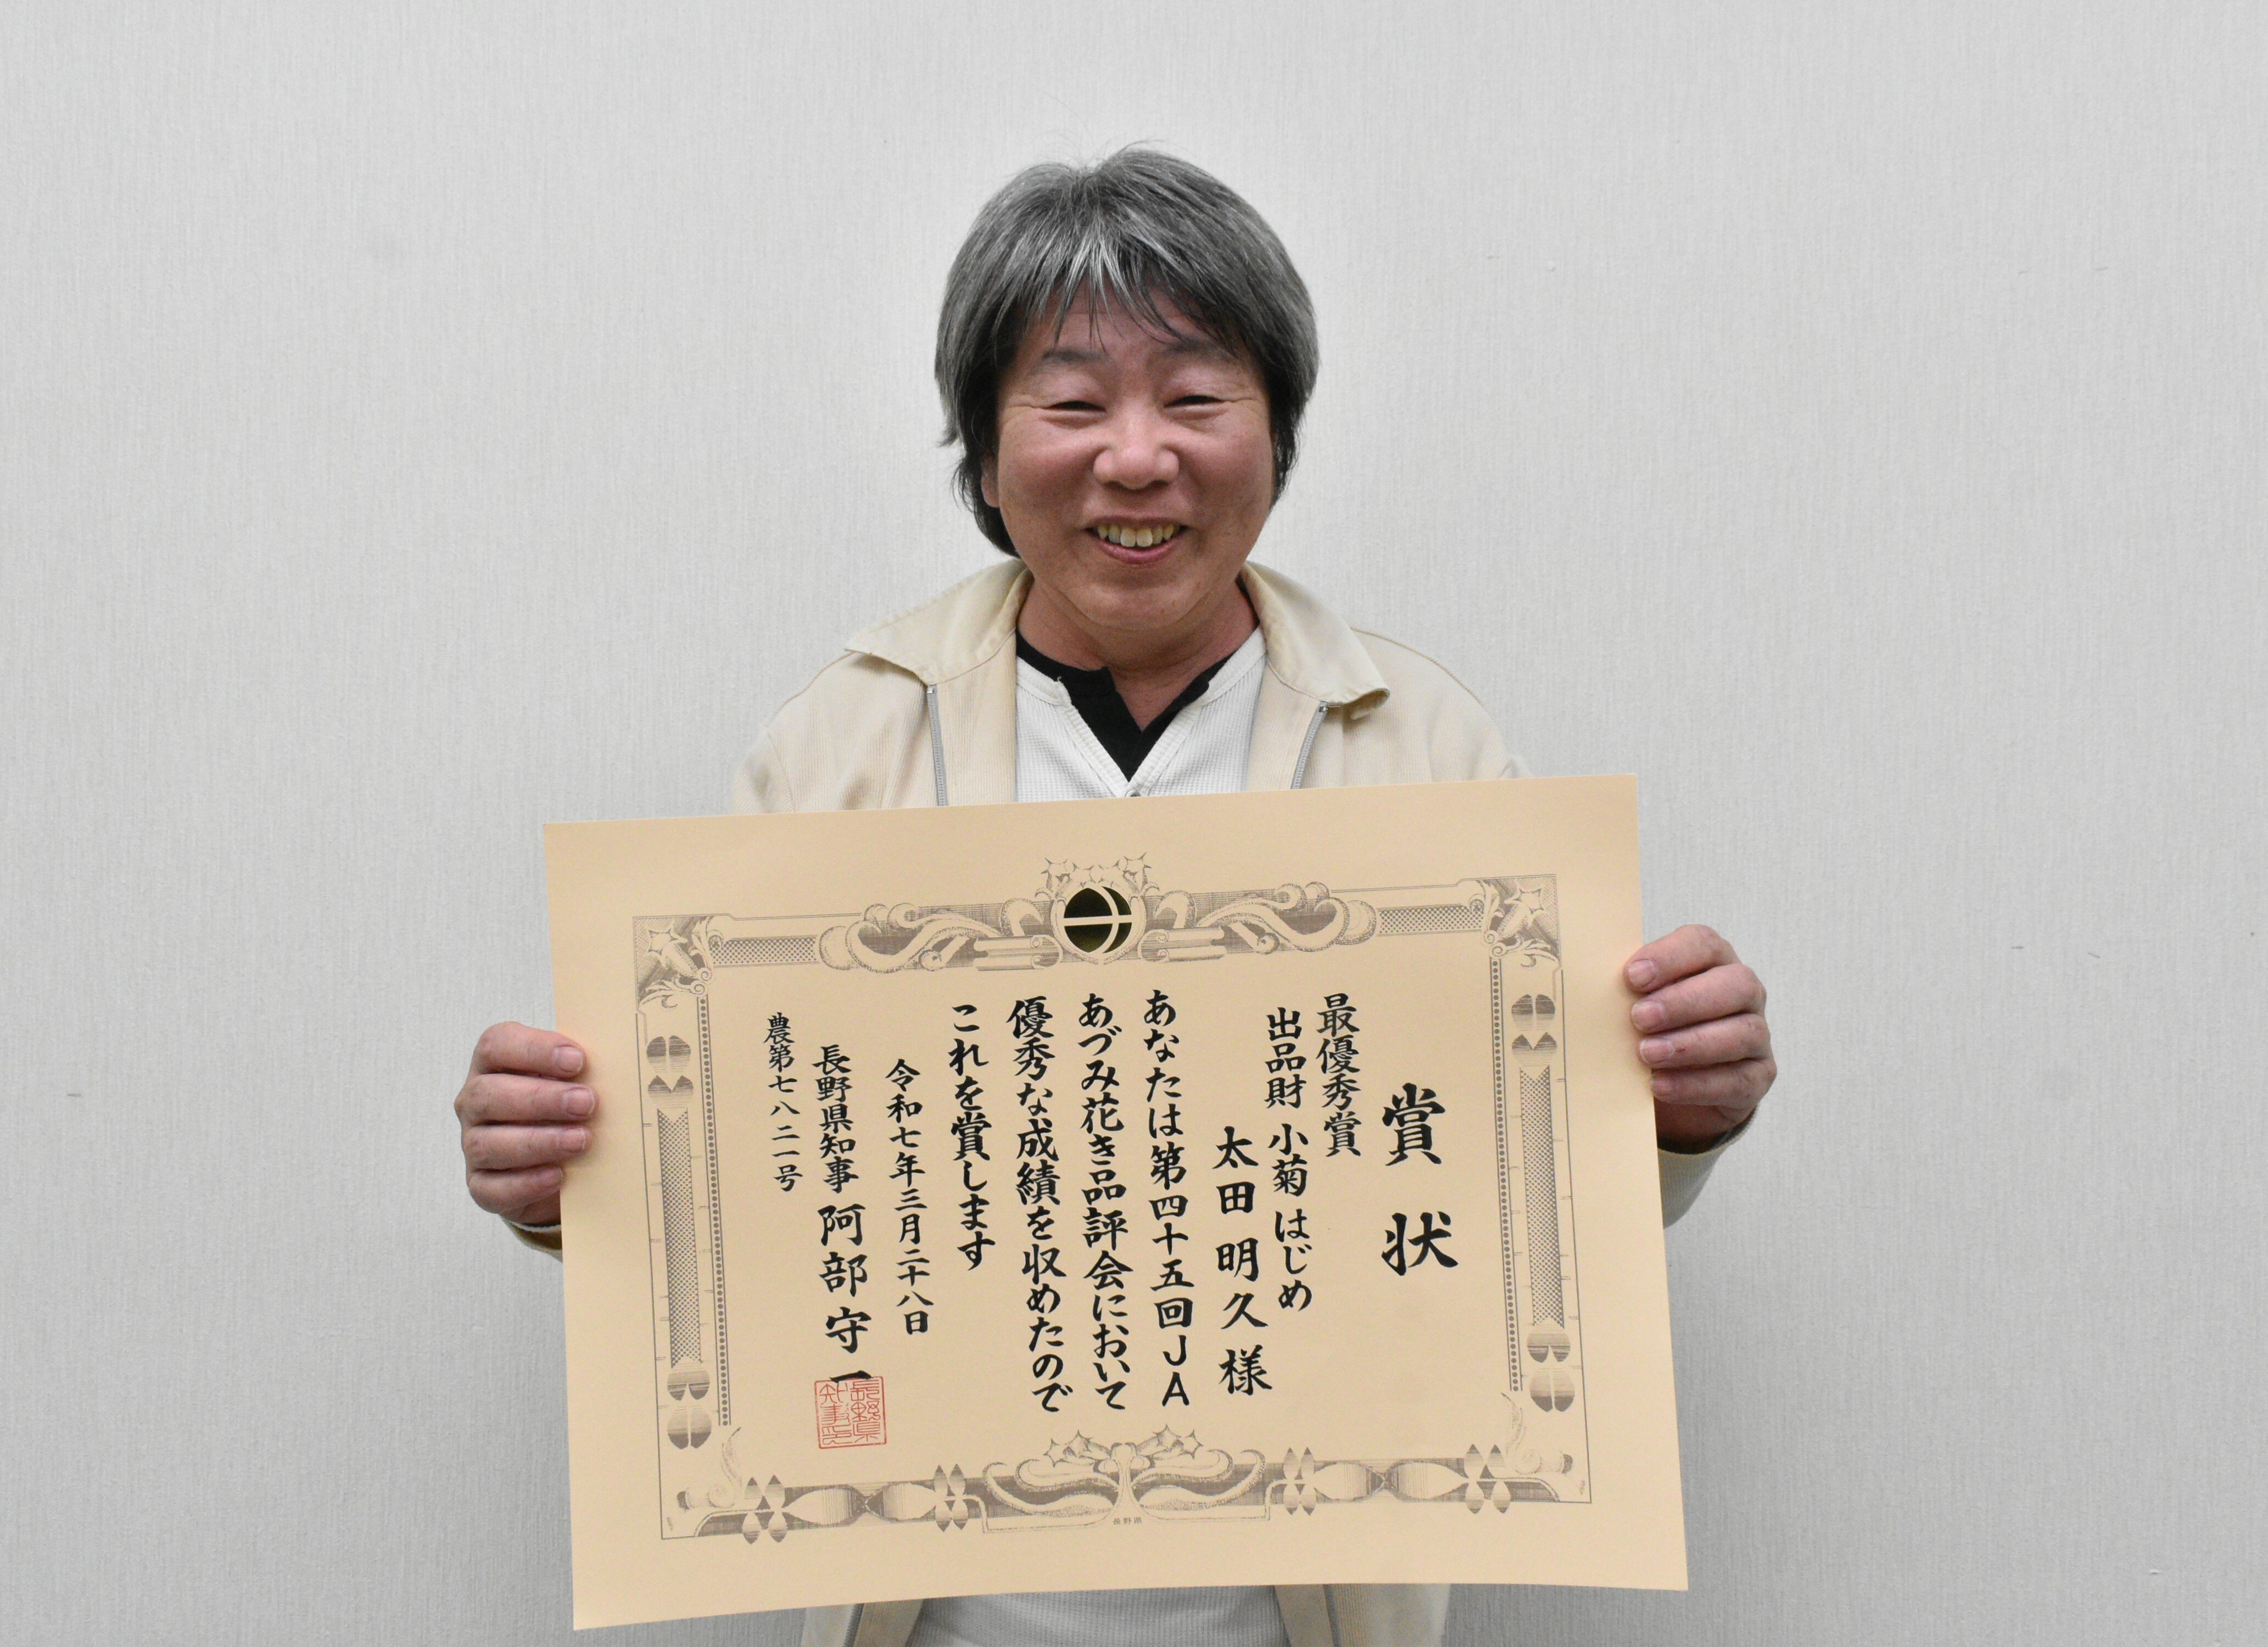 賞状
最優秀賞
出品財 小菊 はじめ
太田明久様
あなたは第四十五回JA
あづみ花き品評会において
優秀な成績を収めたので
これを賞します
令和七年三月二十八日
長野県知事 阿部守一
農第七八二一号
長野県知事之印
長野県